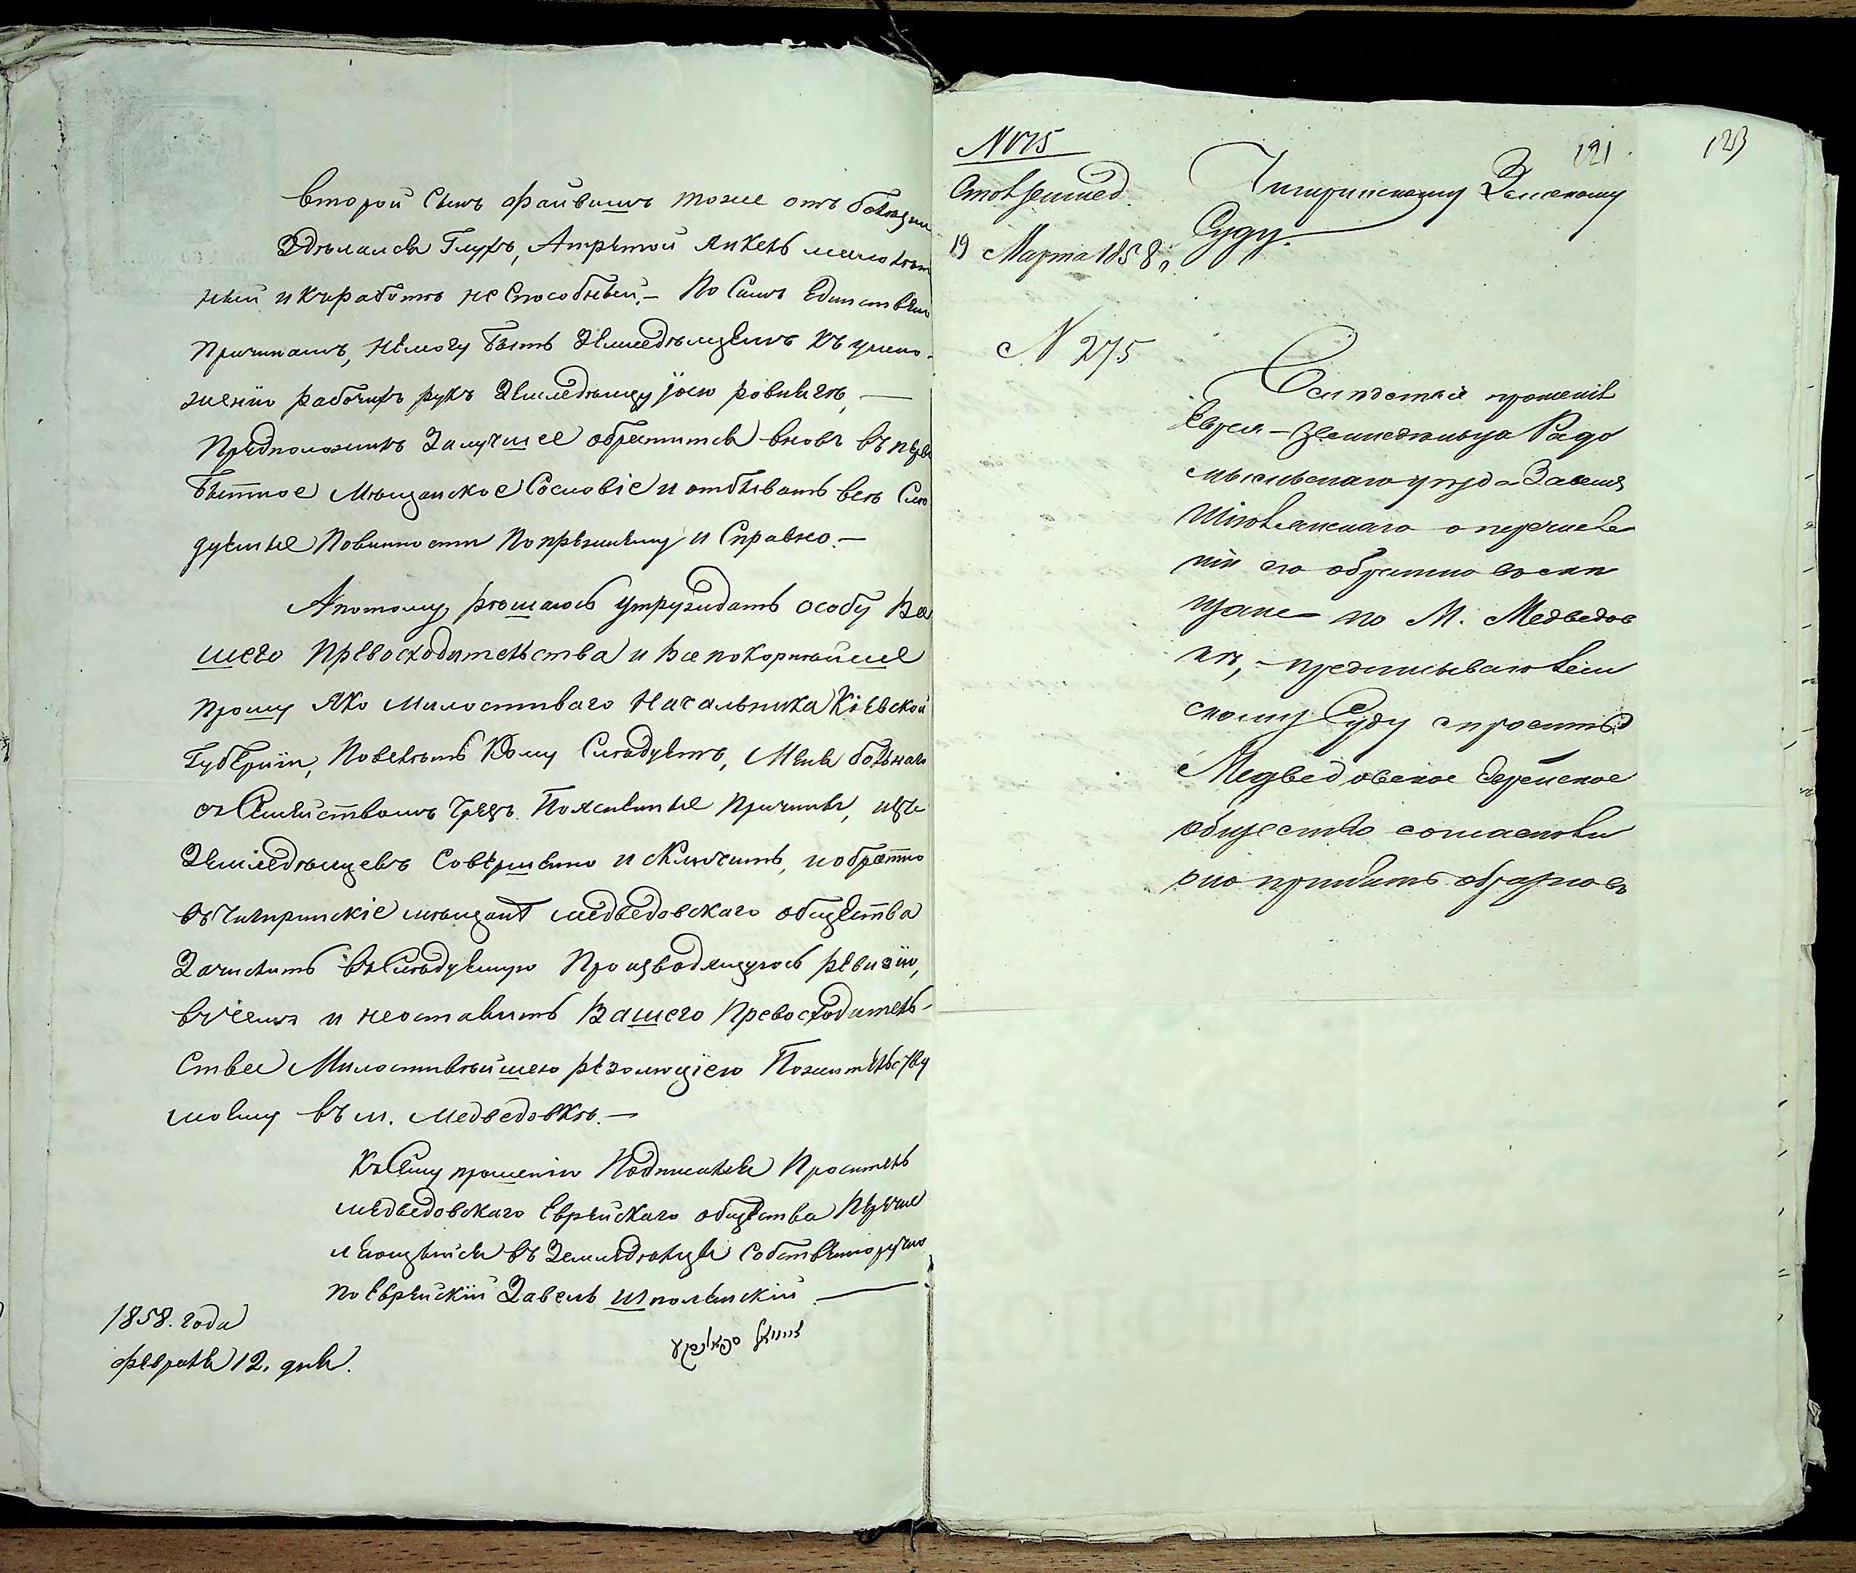 второй Сынъ Файвишъ тоже отъ болезни
Здѣлался Глухъ, Атретій Янкель малолѣт
ный и къ работѣ не Способный. – По Симъ Единствен
Причинамъ, немогу быть Земледѣльцемъ къ умно-
женію рабочихъ рукъ Земледѣльцу
Предположилъ Залучшее обратится вновь въ перво
бытное Мѣщанское Сословіе и отбывать все Слѣ
дуемые Повинности Попрежнему и Справно. –
Апотому рѣшаюсь утруждать особу Ва
шего Превосходительства и Всепокорнѣйше
прошу Яко Милостиваго Начальника Кіевской
Губерніи, Повелѣть Кому Слѣдуетъ, Меня больнаго
съ Семействомъ Чрезъ Поясненные Причины, изъ
Земледѣльцевъ Совершенно исключить, и обратно
въ Чигиринскіе мѣщане медведовскаго общества
Зачислить въ Слѣдуемую Производящуюсь ревизію,
въ чемъ и неоставить Вашего Превосходитель-
Ства Милостивѣйшею резолюціею Пожительству
моему въ м. Медведовкѣ. –
Къ Сему прошенію Подписался Проситель
медведовскаго Еврейскаго общества Перечис
ляющейся въ Земледѣльцы Собственноручно
по Еврейскій Завель Шполянскій
1858. года
февраля 12. дня.
№ 1715
19 Марта 1858
Чигиринскому Земскому
Суду.
121
123
№ 275
прошенія
Еврея – земледѣльца Радо
мысльскаго уѣзда Завеля
Шполянскаго о перечисле
ніи его обратно въ мѣ
щане по М. Медведов
кѣ, – предписываю Зем
скому Суду спросить
Медведовское Еврейское
общество согласно ли
оно принять обратно въ